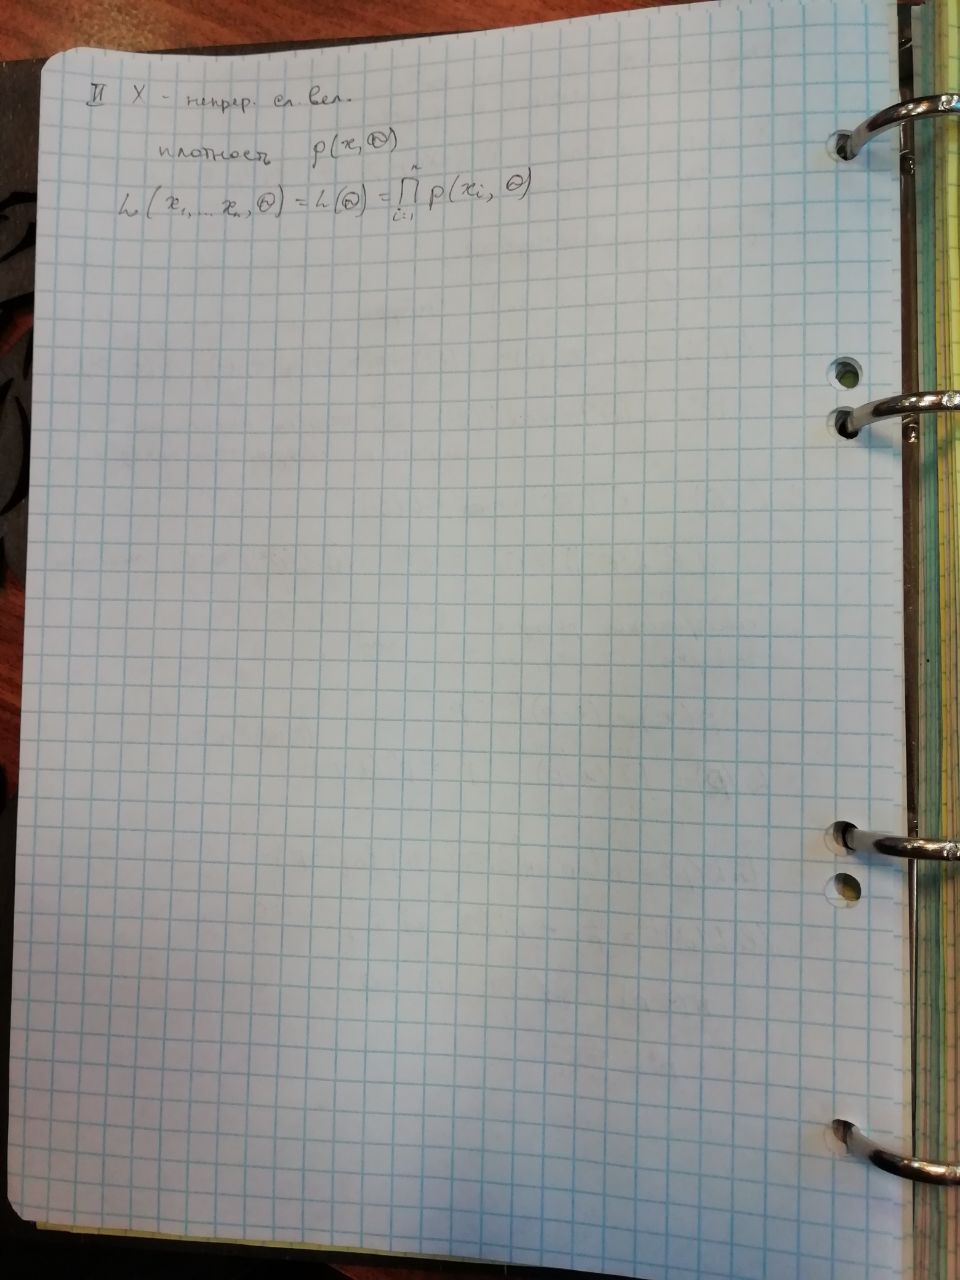 II X - непрер. сл. вел.
плотность p(x, Θ)
L(x₁, ... xₙ, Θ) = L(Θ) = ∏ⁿᵢ₌₁ p(xᵢ, Θ)